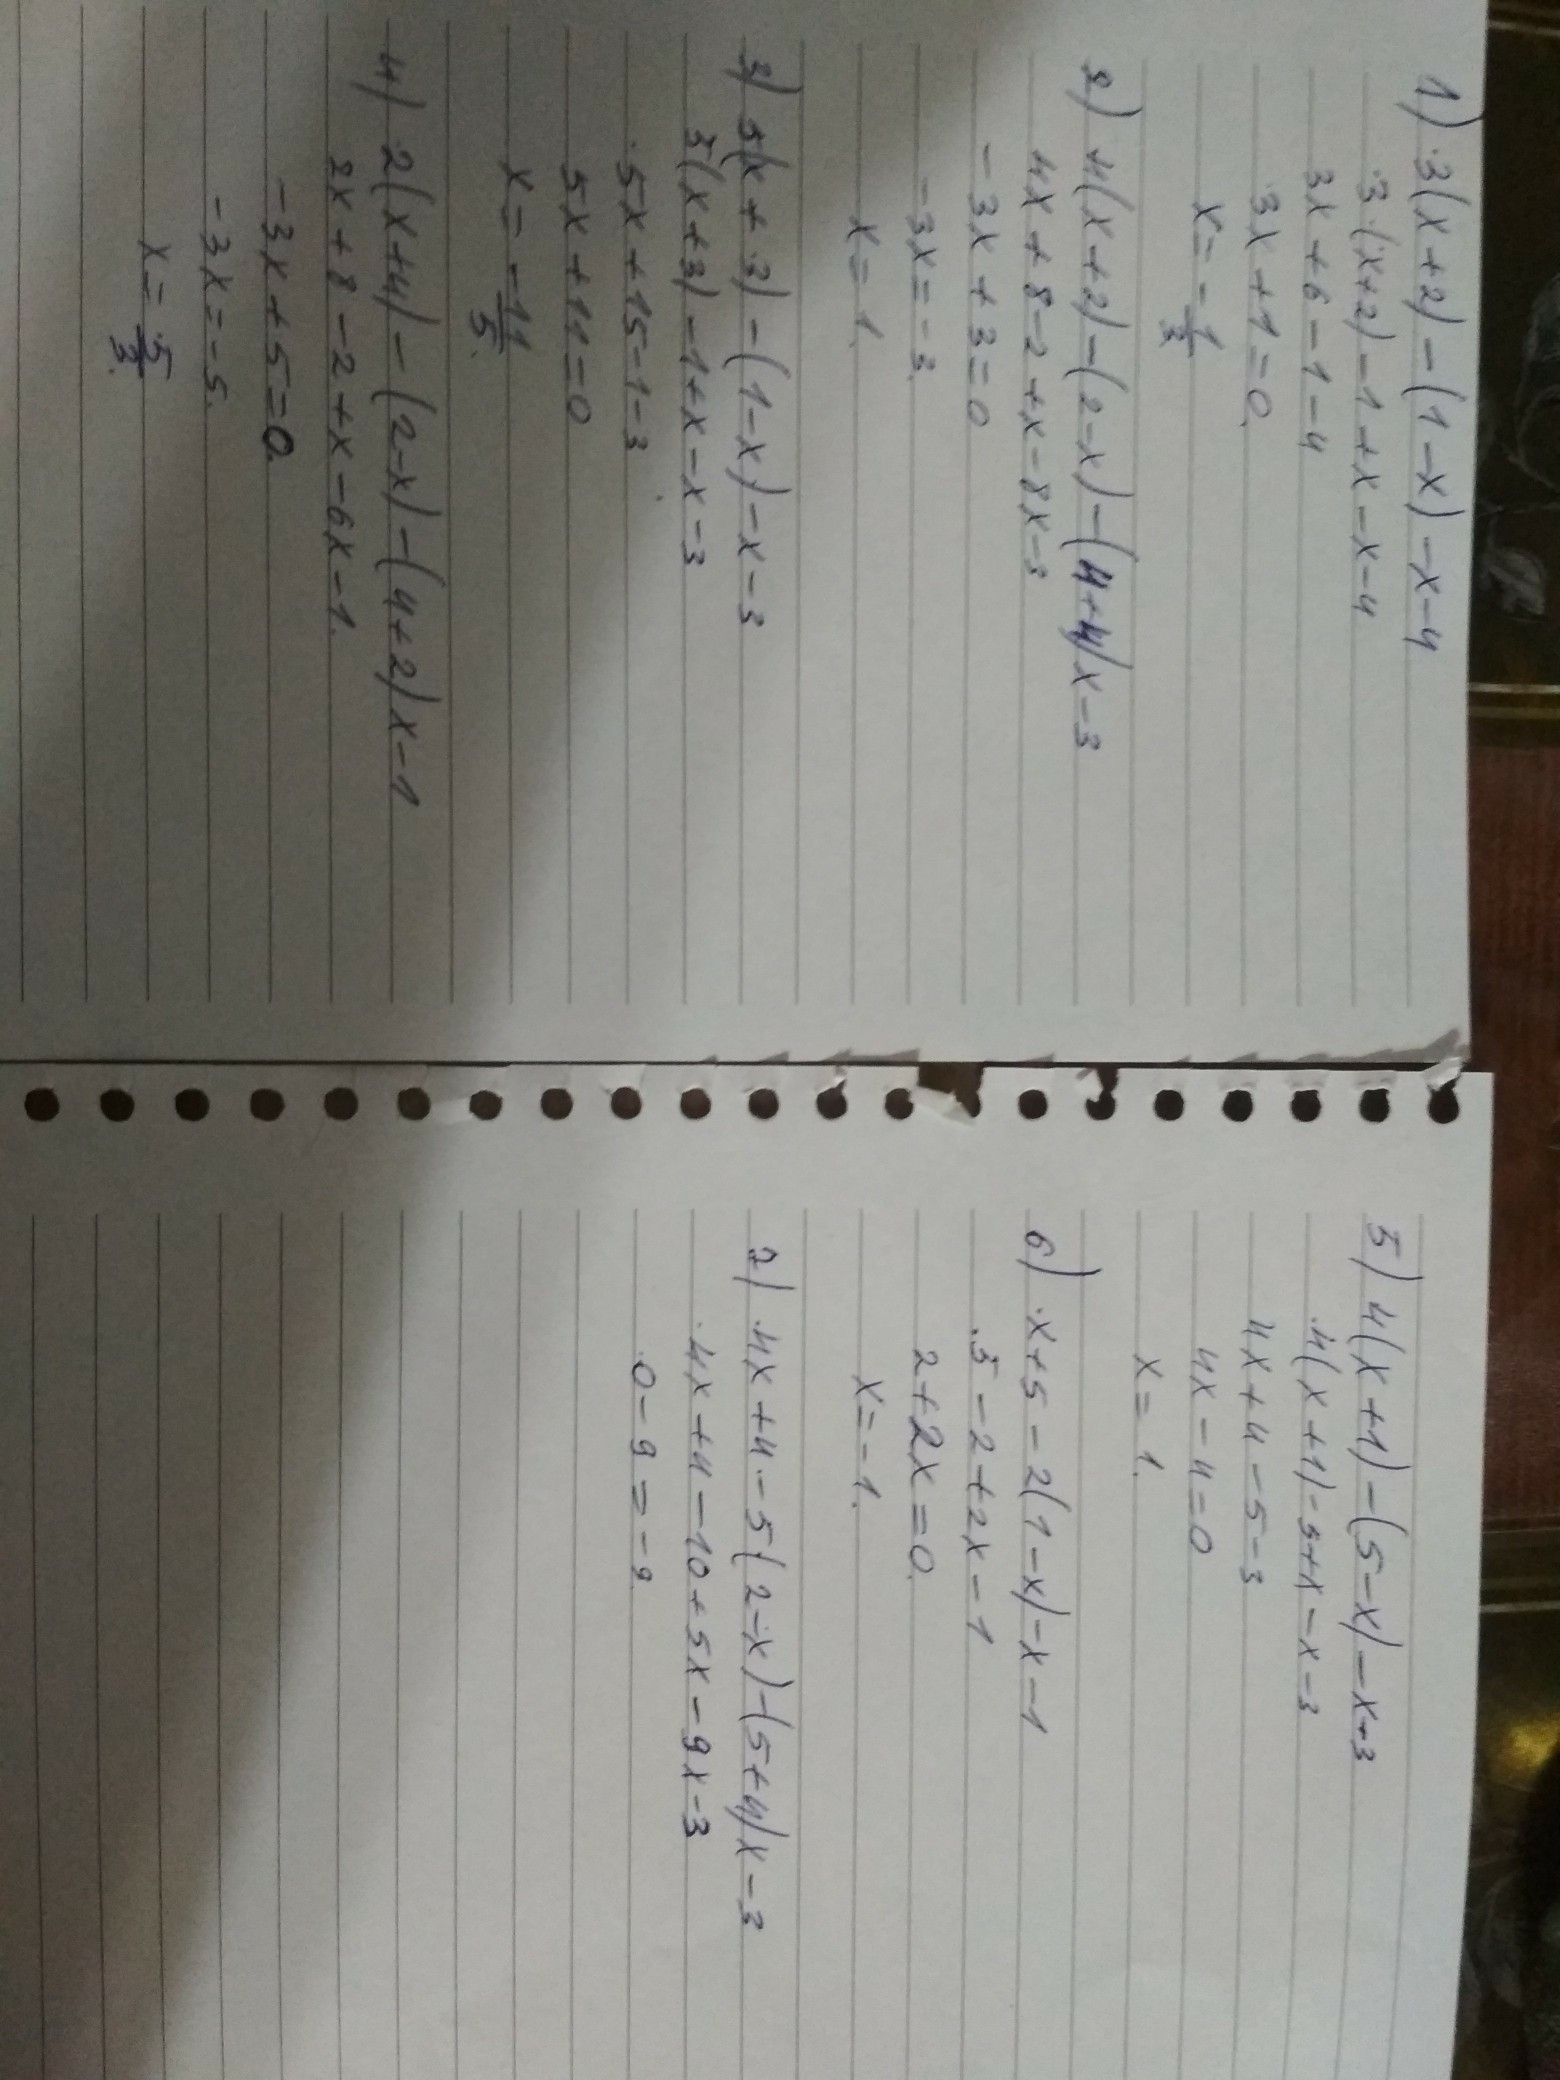 1) 3(x+2)-(1-x)-x-4
3(x+2)-1+x-x-4
3x+6-1-4
3x+1=0
x=-1/3
2) 4(x+2)-(2-x)-(4+4)x-3
4x+8-2+x-8x-3
-3x+3=0
-3x=-3
x=1.
3) 5(x+3)-(1-x)-x-3
5(x+3)-1+x-x-3
5x+15-1-3
5x+11=0
x=-11/5.
4) 2(x+4)-(2-x)-(4+2)x-1
2x+8-2+x-6x-1.
-3x+5=0.
-3x=-5.
x=5/3.
5) 4(x+1)-(5-x)-x+3
4(x+1)-5+x-x-3
4x+4-5-3
4x-4=0
x=1.
6) x+5-2(1-x)-x-1
5-2+2x-1
2+2x=0.
x=-1.
7) 4x+4-5(2-x)-(5+4)x-3
4x+4-10+5x-9x-3
0-9=-9.